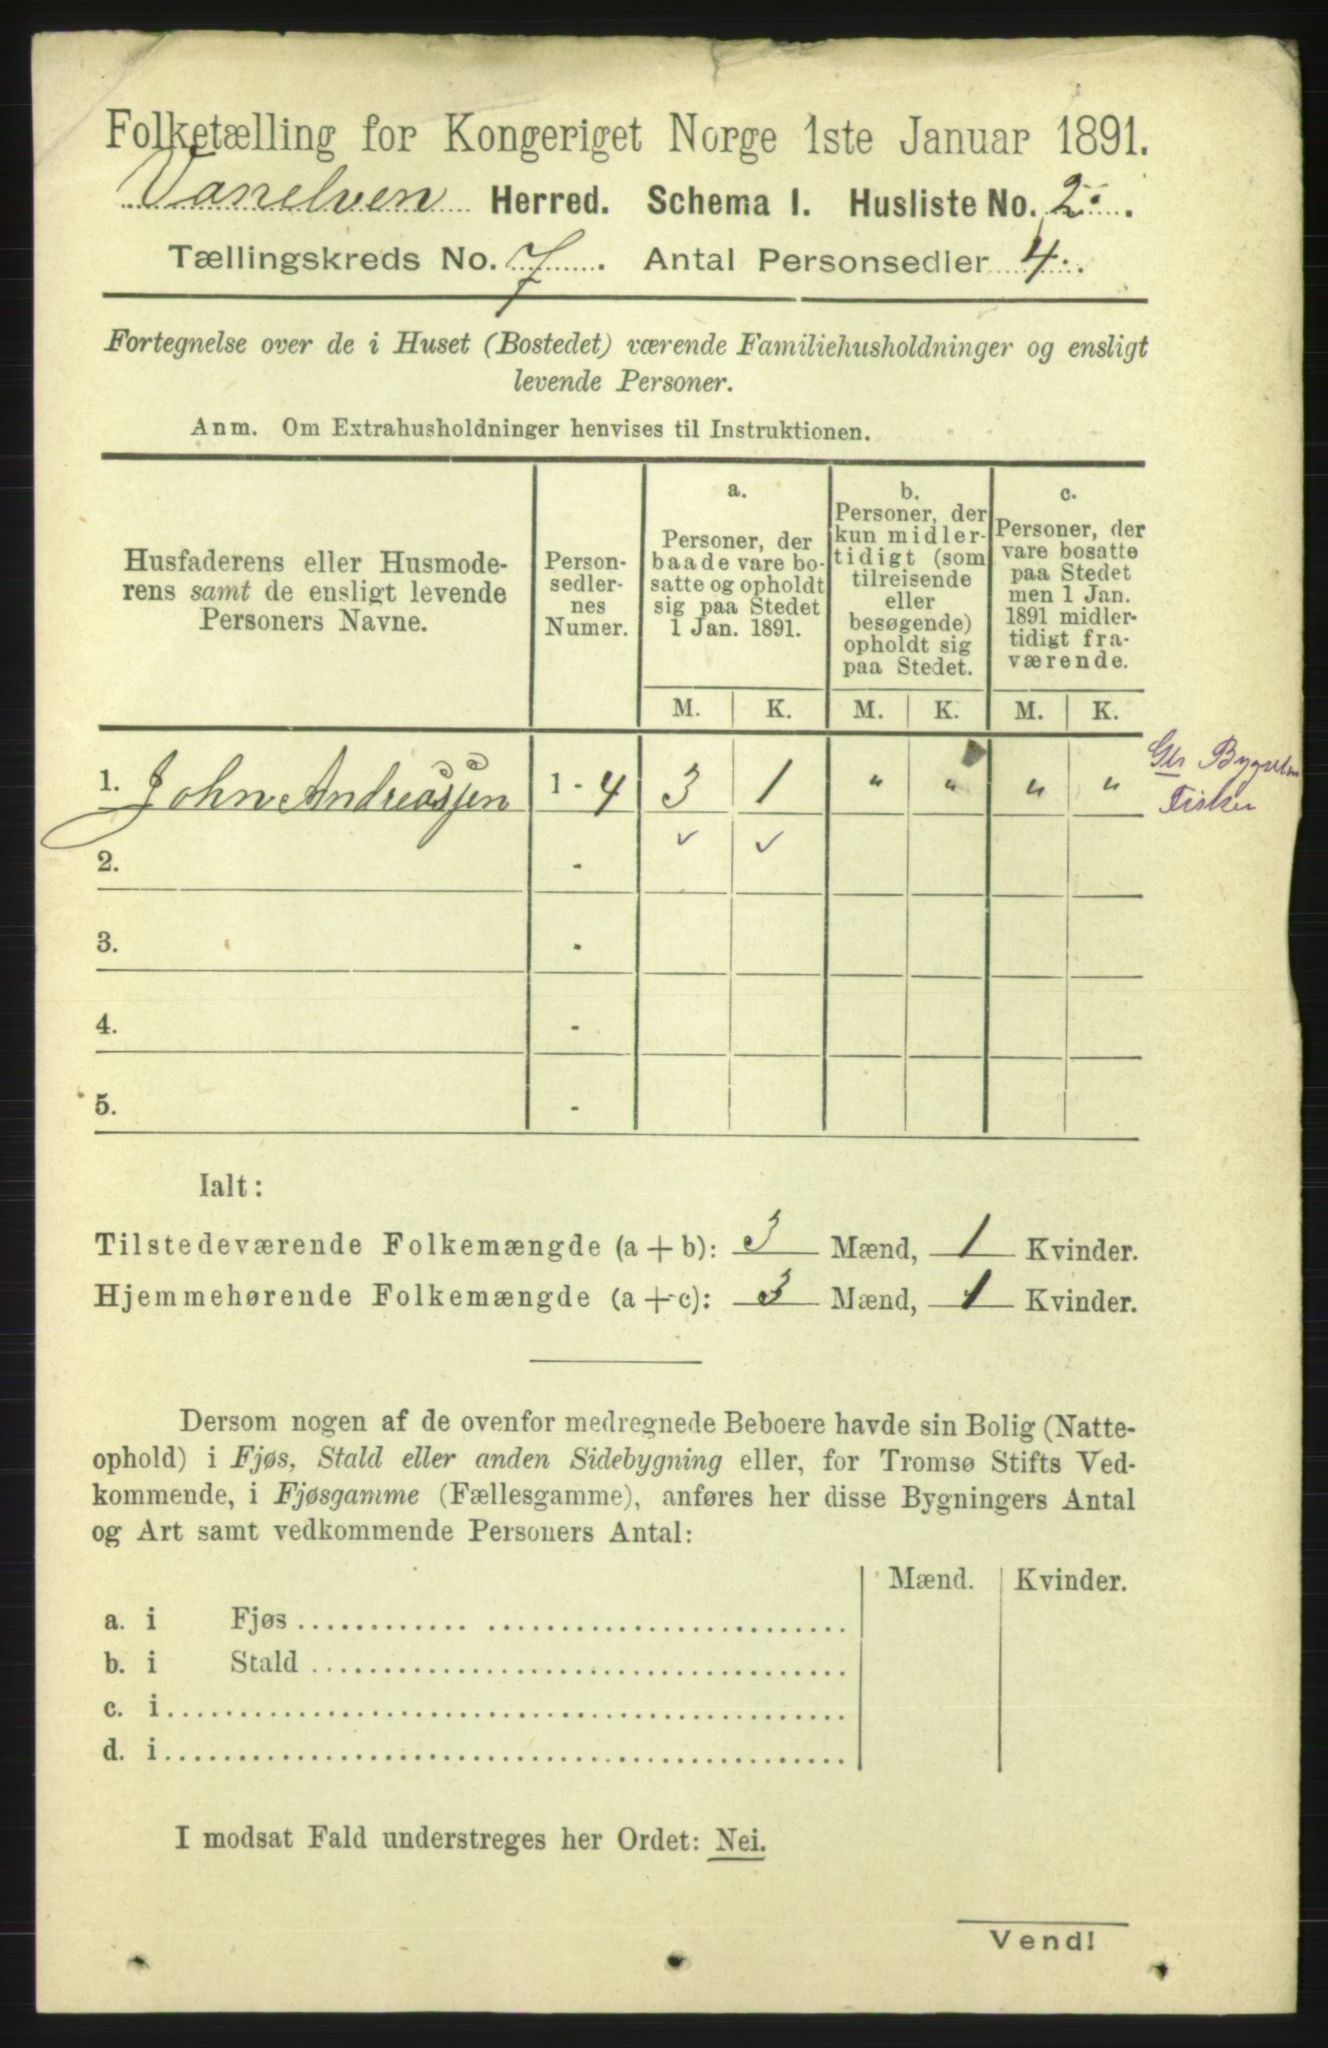 Folketælling for Kongeriget Norge 1ste Januar 1891.
Vanelven Herred. Schema I. Husliste No. 2.
Tællingskreds No. 7. Antal Personsedler 4.
Fortegnelse over de i Huset (Bostedet) værende Familiehusholdninger og ensligt
levende Personer.
Anm. Om Extrahusholdninger henvises til Instruktionen.
Husfaderens eller Husmode-
rens samt de ensligt levende
Personers Navne.
Person-
sedler-
nes
Numer.
a.
Personer, der
baade vare bo-
satte og opholdt
sig paa Stedet
1 Jan. 1891.
b.
Personer, der
kun midler-
tidigt (som
tilreisende
eller
besøgende)
opholdt sig
paa Stedet.
c.
Personer, der
vare bosatte
paa Stedet
men 1 Jan.
1891 midler-
tidigt fra-
værende.
M. K. M. K. M. K.
1. John Andreassen 1 - 4 3 1 " " " "
Fisker
2. - ✓ ✓
3. -
4. -
5. -
Ialt:
Tilstedeværende Folkemængde (a + b): 3 Mænd, 1 Kvinder.
Hjemmehørende Folkemængde (a + c): 3 Mænd, 1 Kvinder.
Dersom nogen af de ovenfor medregnede Beboere havde sin Bolig (Natte-
ophold) i Fjøs, Stald eller anden Sidebygning eller, for Tromsø Stifts Ved-
kommende, i Fjøsgamme (Fællesgamme), anføres her disse Bygningers Antal
og Art samt vedkommende Personers Antal:
Mænd. Kvinder.
a. i Fjøs
b. i Stald
c. i
d. i
I modsat Fald understreges her Ordet: Nei.
Vend!